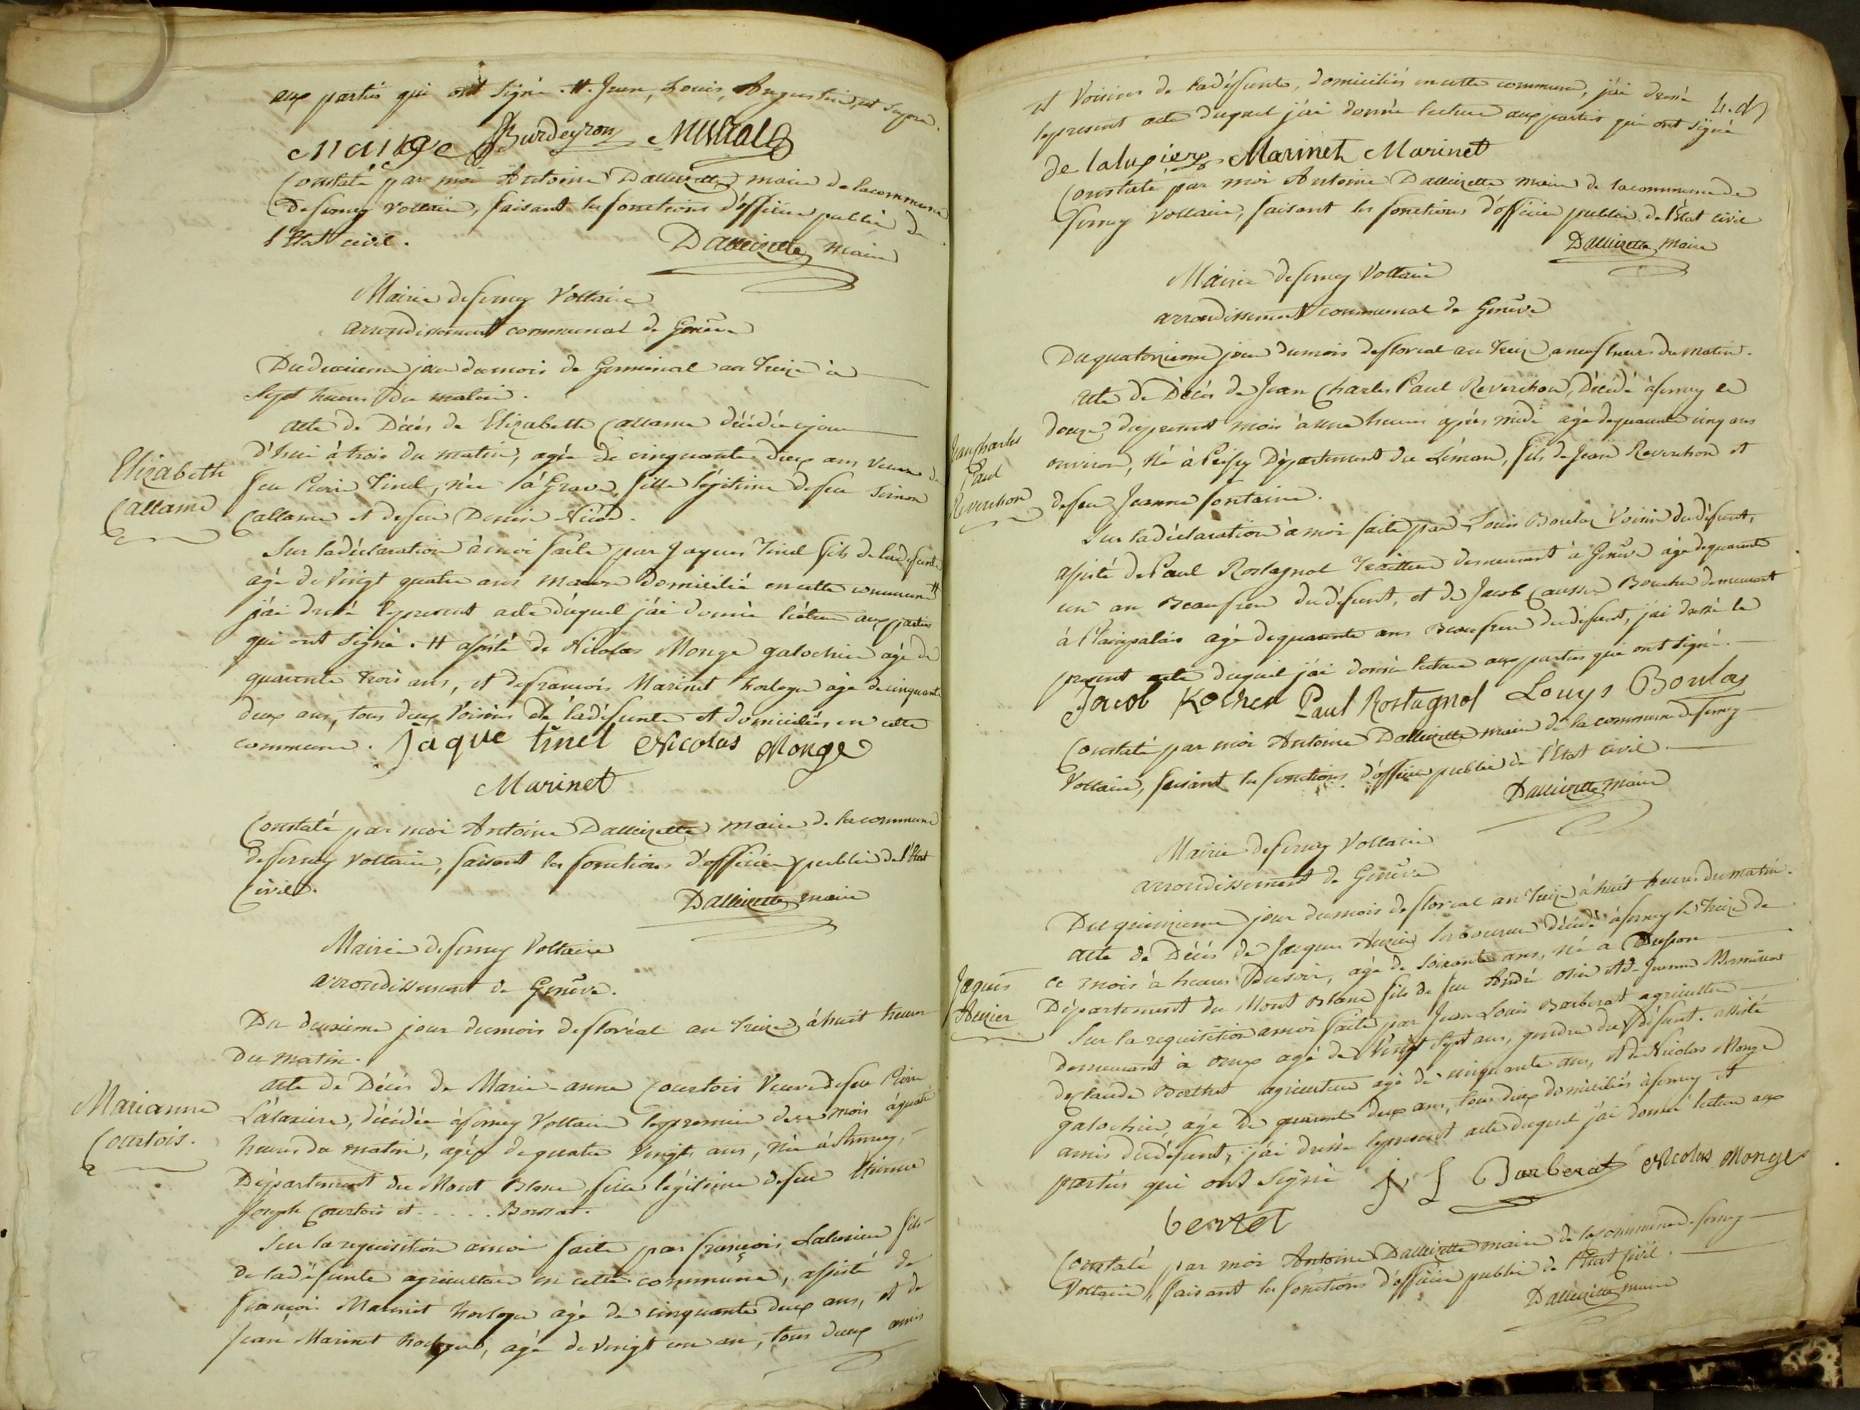 aux partis qui ont signé. # Jean, Louis, Augustin, et
Monge Burdeyron Mistral
Constaté par moi Antoine Dalleizette maire de la commune
De ferney Voltaire, faisant les fonctions d'officier public de
l'Etat civil. Dalleizette maire
Mairie de ferney Voltaire
arrondissement communal de Genève
Du jour du mois de Germinal an Treize à
Sept heures du matin.
acte de Décès de Elizabeth Callame décédée cejour
d'hui à trois du matin, agée de cinquante deux ans veuve de
Elizabeth
Callame
feu Pierre Tinel, née à Grave, fille légitime de feu Simon
Callame et de feue Nicod.
Sur la déclaration à moi faite par Jaques Tinel fils de la défunte
agé de Vingt quatre ans domicilié en cette commune #
j'ai dressé le present acte duquel j'ai donné lecture aux parties
qui ont signé. # assisté de Nicolas Monge galochier agé de
quarente trois ans, et de françois Marinet horloger agé de cinquante
deux ans, tous deux Voisins de la défunte et domiciliés en cette
commune. jaque tinel Nicolas Monge
Marinet
Constaté par moi Antoine Dalleizette maire de la commune
de ferney Voltaire, faisant les fonctions d'officier public de l'Etat
Civil. Dalleizette maire
Mairie de ferney Voltaire
arrondissement de Genêve.
Du deuxieme jour du mois de floréal an Treize à huit heures
Du matin.
acte de Décès de Marie-anne Courtois Veuve de feu Pierre
Marianne
Courtois.
décédée à ferney Voltaire le premier du mois à quatre
heures du matin, agée de quatre vingts ans, née à
Département du Mont Blanc, fille légitime de feu Etienne
Joseph Courtois et ..... Bossat.
Sur la requisition à moi faite par françois fils
de la défunte agriculteur en cette commune, assisté de
françois Marinet horloger agé de cinquante deux ans, et de
Jean Marinet horloger, agé de vingt un an, tous deux amis
et Voisins de la défunte, domiciliés en cette commune, j'ai dressé
le present acte duquel j'ai donné lecture aux parties qui ont signé
Marinet Marinet
Constaté par moi Antoine Dalleizette maire de la commune de
ferney Voltaire, faisant les fonctions d'officier public de l'Etat civil
Dalleizette maire
Mairie de ferney Voltaire
arrondissement communal de Genêve
Du quatorzieme jour du mois de floreal an Treize à neuf heures du matin.
acte de Décès de Jean Charles Paul Reverchon, Décédé à ferney le
Jean Charles
Paul
Reverchon
douze du present mois à une heures après midi agé de quarante cinq ans
environ, né à Peissy Département du Léman, fils de Jean Reverchon et
de feue Jeanne fontaine.
Sur la déclaration à moi faite par Louis Boulaz Voisin du défunt,
assisté de Paul Rostagnol Traitteur demeurant à Genêve agé de quarante
un an Beaufrere du défunt, et de Jacob Boucher demeurant
à Plainpalais agé de quarante ans Beaufrere du défunt, j'ai dressé le
present acte duquel j'ai donné lecture aux parties qui ont signé.
Jacob Paul Rostagnol Louys Boulaz
Constaté par moi Antoine Dalleizette maire de la commune de ferney
Voltaire, faisant les fonctions d'officier public de l'Etat Civil.
Dalleizette maire
Mairie de ferney Voltaire
arrondissement de Genêve
Du quinzieme jour du mois de floreal an Treize à huit heures du matin.
acte de Décès de Jaques laboureur décédé à ferney le Treize de
Jaques
ce mois à heures Du soir, agé de soixante ans, né à
Département du Mont Blanc fils de feu
Sur la requisition à moi faite par Jean Louis Barberat agriculteur
demeurant à agé de Vingt Sept ans, gendre du défunt. assisté
de Claude Berthet agriculteur agé de cinquante ans, et de Nicolas Monge
galochier, agé de quarente deux ans, tous deux domiciliés à ferney et
amis du défunt, j'ai dressé le present acte duquel j'ai donné lecture aux
parties qui ont signé J L Barberat Nicolas Monge
Constaté par moi Antoine Dalleizette maire de la commune de ferney
Voltaire, faisant les fonctions d'officier public de l'Etat civil.
Dalleizette maire